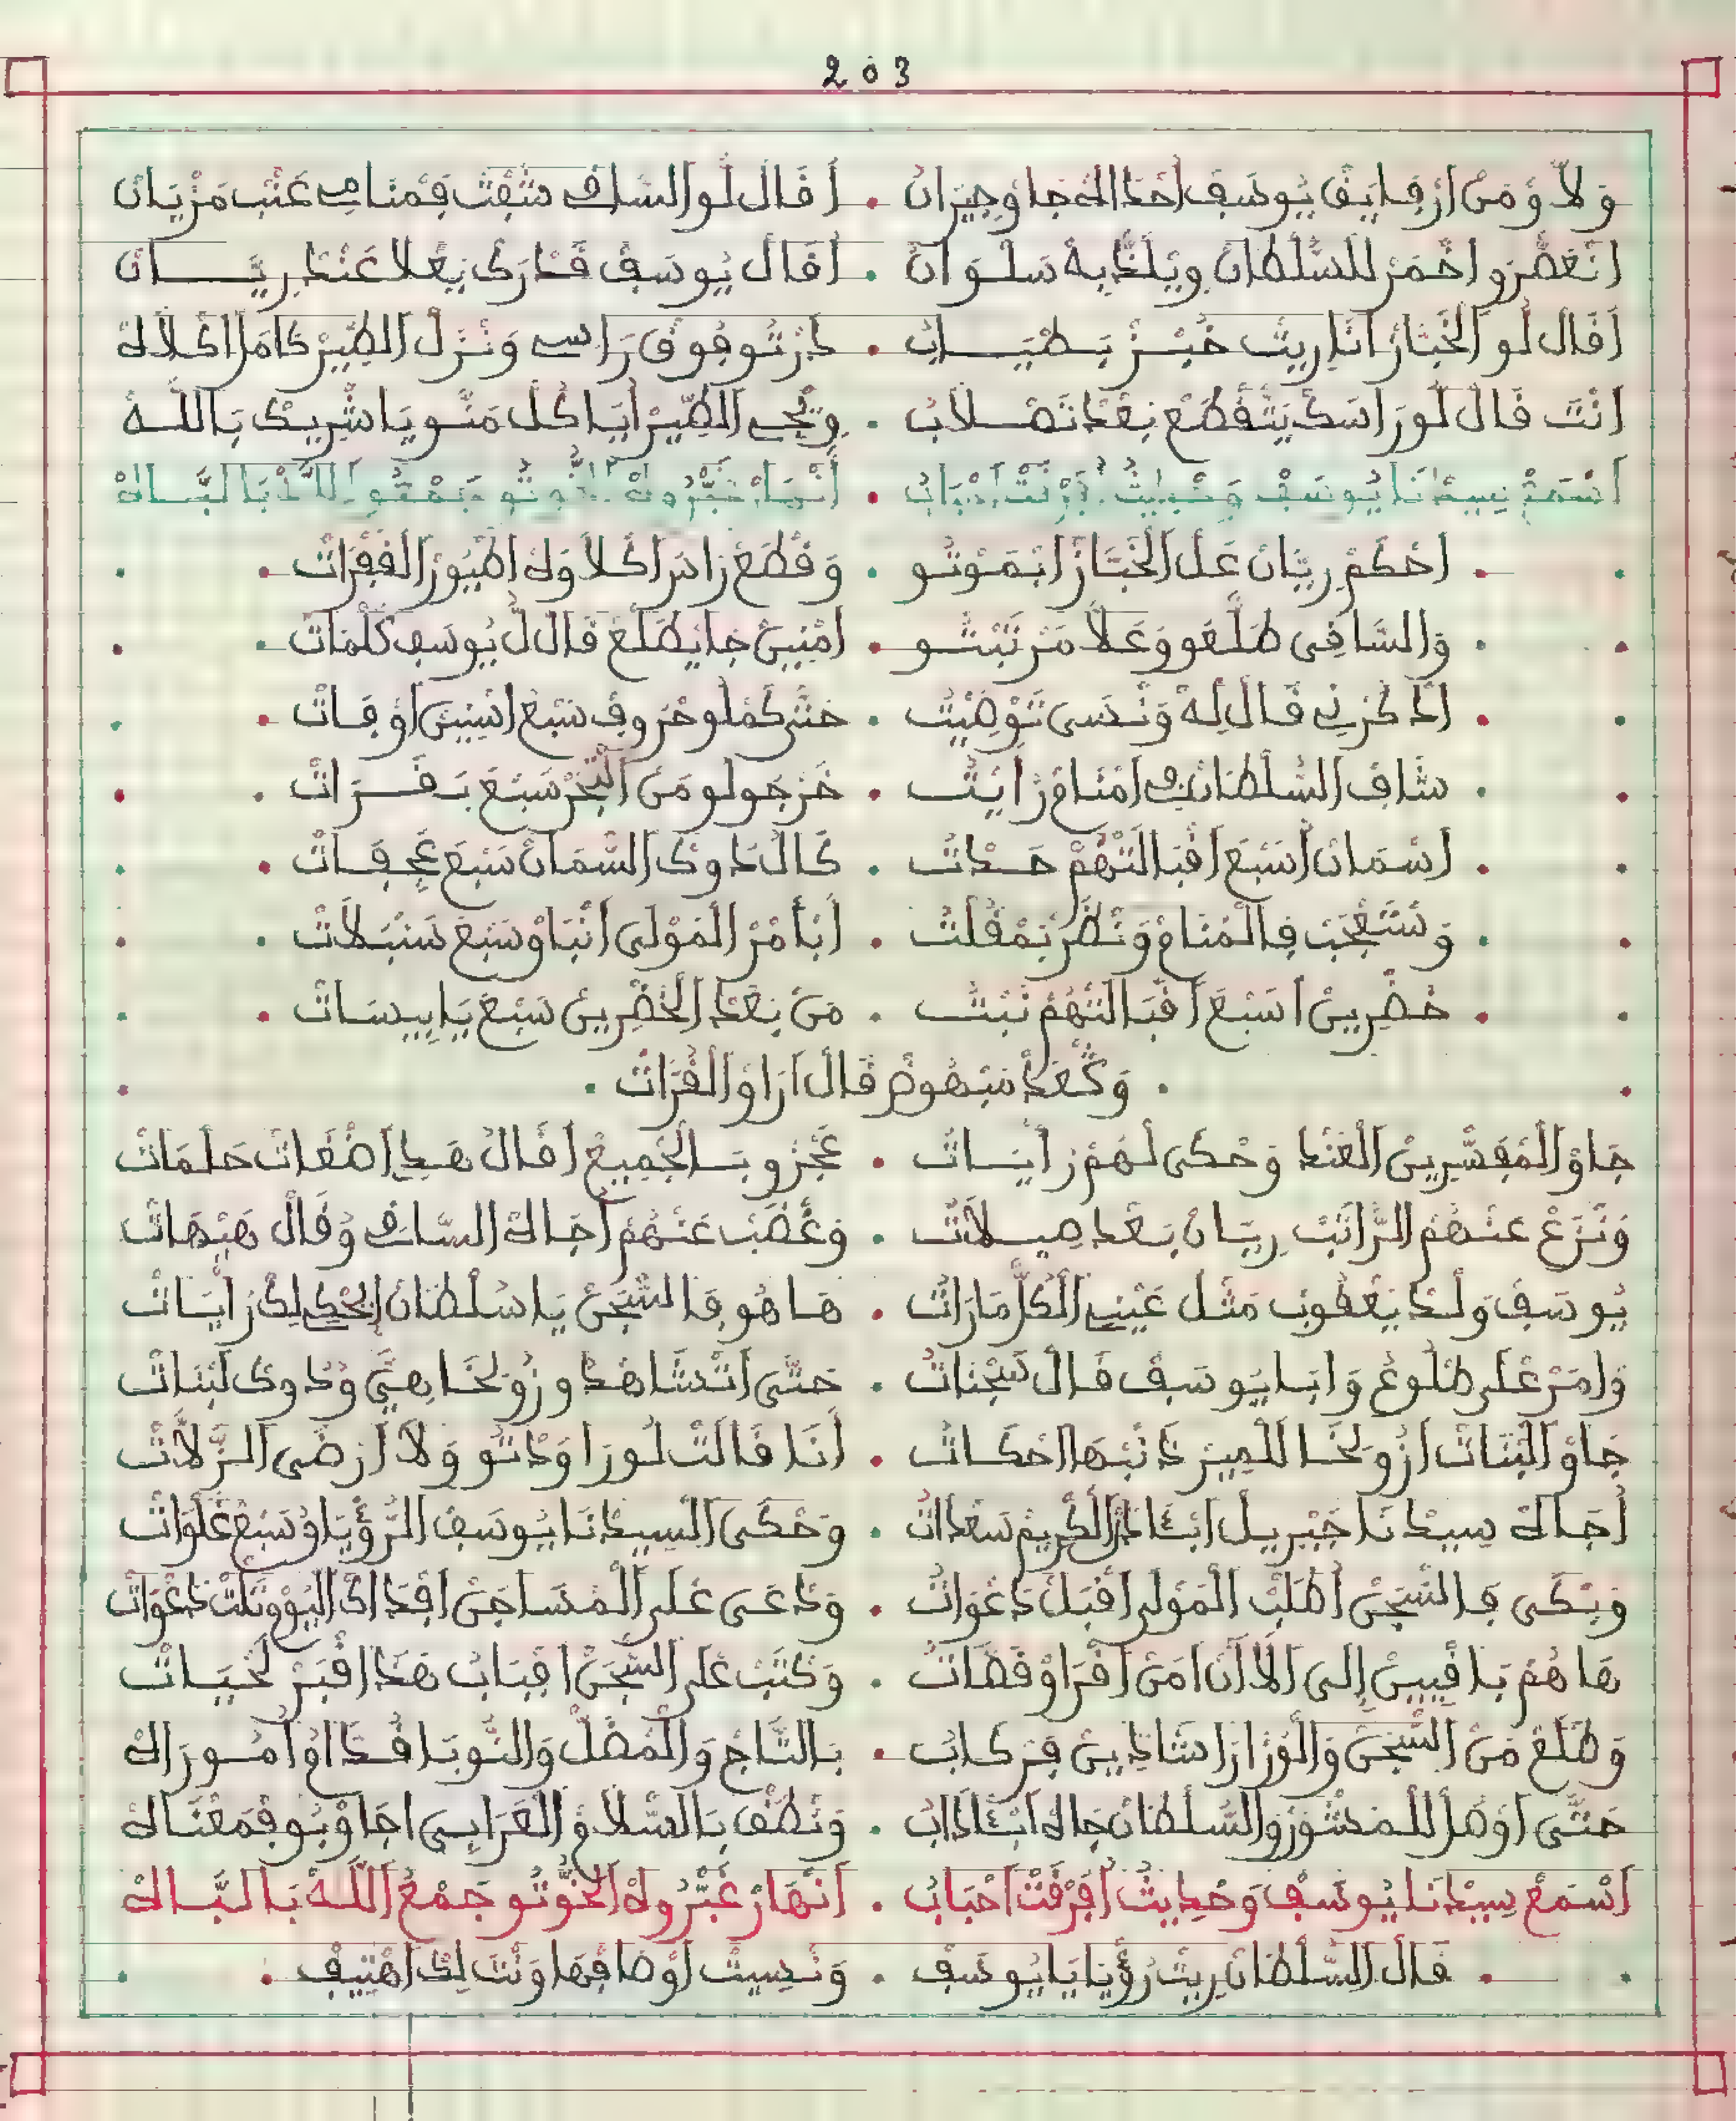 203
وَلاَّ وَمَنْ ارْفَايَقْ يُوسَفِ احْدَاهْ جَاوْ جِيرَانْ . اَقَالْ لُو السَّاقِي شَفْتْ فِمْنَامِي عَنْبْ مَزْيَانْ
انْعَصْرُو اخْمَرْ للسُّلْطَانْ وِيْلَذِّ بِهْ سَلْوَانْ . اَقَالْ يُوسَفْ قَدْرَكْ يَعْلاَ عَنْدْ رِيَّانْ
اَقَالْ لُو الْخَبَّازْ اَنَا رِيتْ خُبْزْ بَطْيَابْ . دَرْتُو فُوقْ رَاسِي وَنْزَلْ الطِّيرْ كَامَلْ اكْلاَهْ
انْتَ قَالْ لُو رَاسَكْ يَتْقْطَعْ بَعْدْ تَصْلاَبْ . وِيْجِي الطِّيرْ اَيَاكُلْ مَنُّو يَا شْرِيكْ بَاللَّهْ
اَسْمَعْ سِيدْنَا يُوسَفْ وَحْدِيثْ اَفَرْقَتْ احْبَابْ . اَنْهَارْ غَبْرُوهْ اَلْخُوتُو جَمْعُ اللَّهْ بَالنَّبَاهْ
اَحْكَمْ رِيَّانْ عَلْ الْخَبَّازْ ابْمَوْتُو . وَقْطَعْ رَاسَ اكْلاَوَهْ اطْيُورْ الْقَفْرَاتْ
وَالسَّاقِي طَلْعُو وَعَلاَّ مَرْتَبْتُو . امْنِينْ جَا يَطْلَعْ قَالْ لُ يُوسَفِ كَلْمَاتْ
اذْكُرْنِي قَالْ لِهْ وَنْسَى تَوْصِيتْ . حَتَّى كَمْلُو حْرُوفْ سَبْعَ اسْنِينْ اَوْفَاتْ
شَافْ السُّلْطَانْ فِي امْنَامُ رَايْتْ . خَرْجُو لُو مَنْ الْبْحَرْ سَبْعَ بَقَرَاتْ
اَسْمَانْ اَسْبَعَ اقْبَالَتْهُمْ حَدْتْ . كَالْ ذَاوْكَ السّْمَانْ سَبْعَ عَجْفَاتْ
وَسْتَعْجَبْ فِالْمْنَامْ وَنْظَرْ بَمْقَلْتْ . اَبْأَمْرْ الْمَوْلَى انْبَاوْ سَبْعَ سَنْبَلاَتْ
خَضْرِينْ اسْبَعَ اقْبَالَتْهُمْ نَبْتْ . مَنْ بَعْدْ الْخَضْرِينْ سَبْعَ يَابِسَاتْ
. وَكْعَدْ مَبْهُوضْ قَالْ اَرَاوْ الْقُرَاتْ .
جَاوْ الْمْفَسّْرِينْ الْعَنْدْ وَحْكَى لَهُمْ رَايَاتْ . عَجْزُو بَالْجْمِيعْ اَقَالْ هَدِ اضْغَاتْ حَلْمَاتْ
وَنْزَعْ عَنْهُمْ الرَّاتَبْ رِيَّانْ بَعْدْ صِيلاَتْ . وَغْضَبْ عَنْهُمْ اَجَاهْ السَّاقِي وْقَالْ هَيْهَاتْ
يُوسَفْ وَلْدْ يَعْقُوبْ مَثْلْ عَيْنِي الْكُلّْ مَارَاتْ . هَاهُو فَالسّْجَنْ يَا سُلْطَانْ اِيْحْكِي لَكْ رَايَاتْ
وَامَرْ عْلَى طْلُوعُ وَابَا يُوسَفْ قَالْ سَجْنَاتْ . حَتَّى اتْشَاهْدُو زُولِيخَا هِيَّ وْدُوكْ لَبْنَاتْ
جَاوْ الْبْنَاتْ ازُولِيخَا لَلْمِيزْ ذَنْبْهَا احْكَاتْ . اَنَا قَالَتْ لُو رَاوَدْتُو وَلاَ ارْضَى الزَّلاَّتْ
اَجَاهْ سِيدْنَا جَبْرِيلْ ابْشَاذْرْ الْكْرِيمْ سَعْدَاتْ . وَحْكَى السِيدْنَا يُوسَفْ الرُّؤْيَا وْسَبْعْ غَلْوَاتْ
وَبْكَى فَالسّْجَنْ اَطْلَبْ الْمَوْلَى اقْبَلْ دَعْوَاتْ . وَدْعَى عْلَى الْمْسَاجَنْ افْدَاكْ الْيُومْ وْتَلْتْ دَعْوَاتْ
هَاهُمْ بَاقْيِينْ إِلَى الأَانْ امَنْ اقْرَاوْ قَصَّاتْ . وَكْتَبْ عْلَى السّْجَنْ افْبَابْ هَذَا قْبَرْ لَحْيَاتْ
وَطْلَعْ مَنْ السّْجَنْ وَالْوْزَارَا شَادِّينْ فَرْكَابْ . بَالتَّاجْ وَالْمْضَلّْ وَالنُّوبَا قُدَّامُ امُورَاهْ
حَتَّى اَوْصَلْ للْمَشْوَرْ وَالسُّلْطَانْ جَاهْ ابْتَادَابْ . وَنْطَقْ بَالسّْلاَمْ الْعَرَابِي اجَاوْبُو فِمَعْنَاهْ
اَسْمَعْ سِيدْنَا يُوسَفْ وَحْدِيثْ اَفَرْقَتْ احْبَابْ . اَنْهَارْ غَبّْرُوهْ الْخُوَّتُو جَمْعُ اللَّهْ بَالنَّبَاهْ
قَالْ السُّلْطَانْ رِيتْ رُؤْيَا يَا يُوسَفْ . وَنْسِيتْ اَوْصَافْهَا وَنْتَ لِكْ اهْتِيفْ